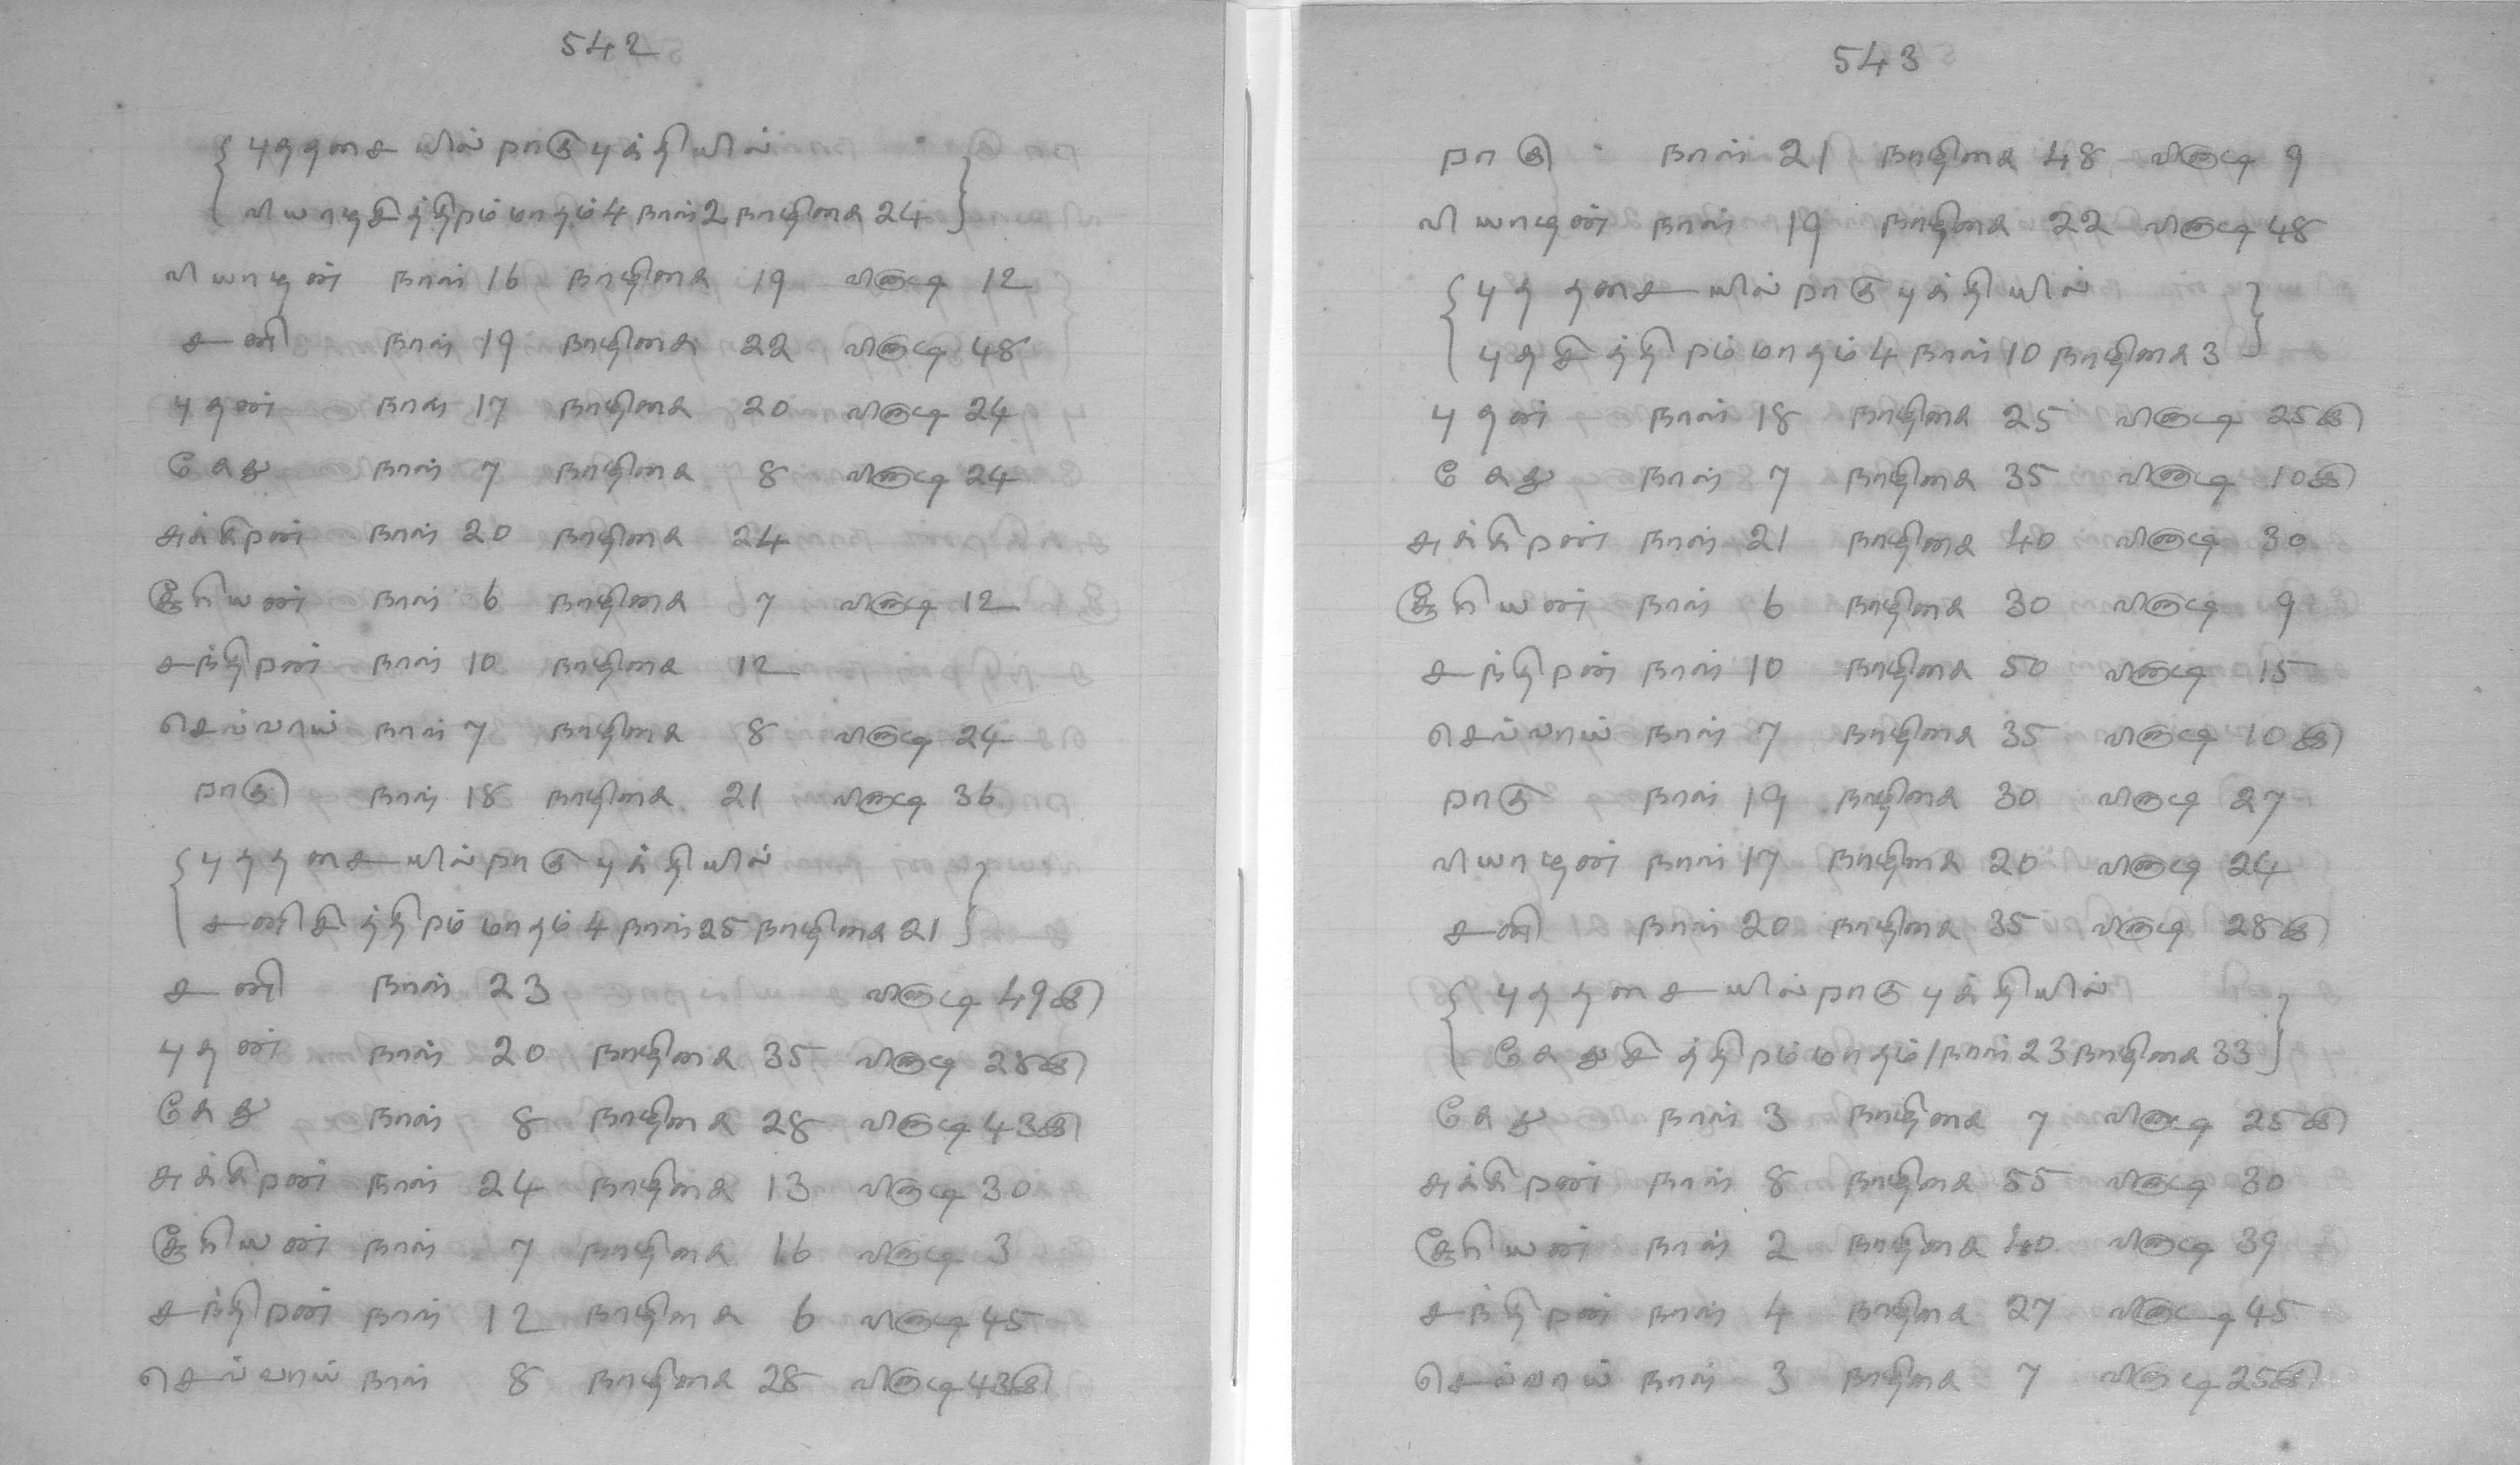 542
{ புததசையில் ராகு புக்தியில்
வியாழசித்திரம் மாதம் 4 நாள் 2 நாழிகை 24 }
வியாழன் நாள் 16 நாழிகை 19 விநாடி 12
சனி நாள் 19 நாழிகை 22 விநாடி 48
புதன் நாள் 17 நாழிகை 20 விநாடி 24
கேது நாள் 7 நாழிகை 8 விநாடி 24
சுக்கிரன் நாள் 20 நாழிகை 24
சூரியன் நாள் 6 நாழிகை 7 விநாடி 12
சந்திரன் நாள் 10 நாழிகை 12
செவ்வாய் நாள் 7 நாழிகை 8 விநாடி 24
ராகு நாள் 18 நாழிகை 21 விநாடி 36
{ புததசையில் ராகு புக்தியில்
சனிசித்திரம் மாதம் 4 நாள் 25 நாழிகை 21 }
சனி நாள் 23 விநாடி 49௫
புதன் நாள் 20 நாழிகை 35 விநாடி 28௫
கேது நாள் 8 நாழிகை 28 விநாடி 43௫
சுக்கிரன் நாள் 24 நாழிகை 13 விநாடி 30
சூரியன் நாள் 7 நாழிகை 16 விநாடி 3
சந்திரன் நாள் 12 நாழிகை 6 விநாடி 45
செவ்வாய் நாள் 8 நாழிகை 28 விநாடி 43௫
543
ராகு நாள் 21 நாழிகை 48 விநாடி 9
வியாழன் நாள் 19 நாழிகை 22 விநாடி 48
{ புததசையில் ராகு புக்தியில்
புதசித்திரம் மாதம் 4 நாள் 10 நாழிகை 3 }
புதன் நாள் 18 நாழிகை 25 விநாடி 25௫
கேது நாள் 7 நாழிகை 35 விநாடி 10௫
சுக்கிரன் நாள் 21 நாழிகை 40 விநாடி 30
சூரியன் நாள் 6 நாழிகை 30 விநாடி 9
சந்திரன் நாள் 10 நாழிகை 50 விநாடி 15
செவ்வாய் நாள் 7 நாழிகை 35 விநாடி 10௫
ராகு நாள் 19 நாழிகை 30 விநாடி 27
வியாழன் நாள் 17 நாழிகை 20 விநாடி 24
சனி நாள் 20 நாழிகை 35 விநாடி 28௫
{ புததசையில் ராகு புக்தியில்
கேதுசித்திரம் மாதம் 1 நாள் 23 நாழிகை 33 }
கேது நாள் 3 நாழிகை 7 விநாடி 25௫
சுக்கிரன் நாள் 8 நாழிகை 55 விநாடி 30
சூரியன் நாள் 2 நாழிகை 40 விநாடி 39
சந்திரன் நாள் 4 நாழிகை 27 விநாடி 45
செவ்வாய் நாள் 3 நாழிகை 7 விநாடி 25௫